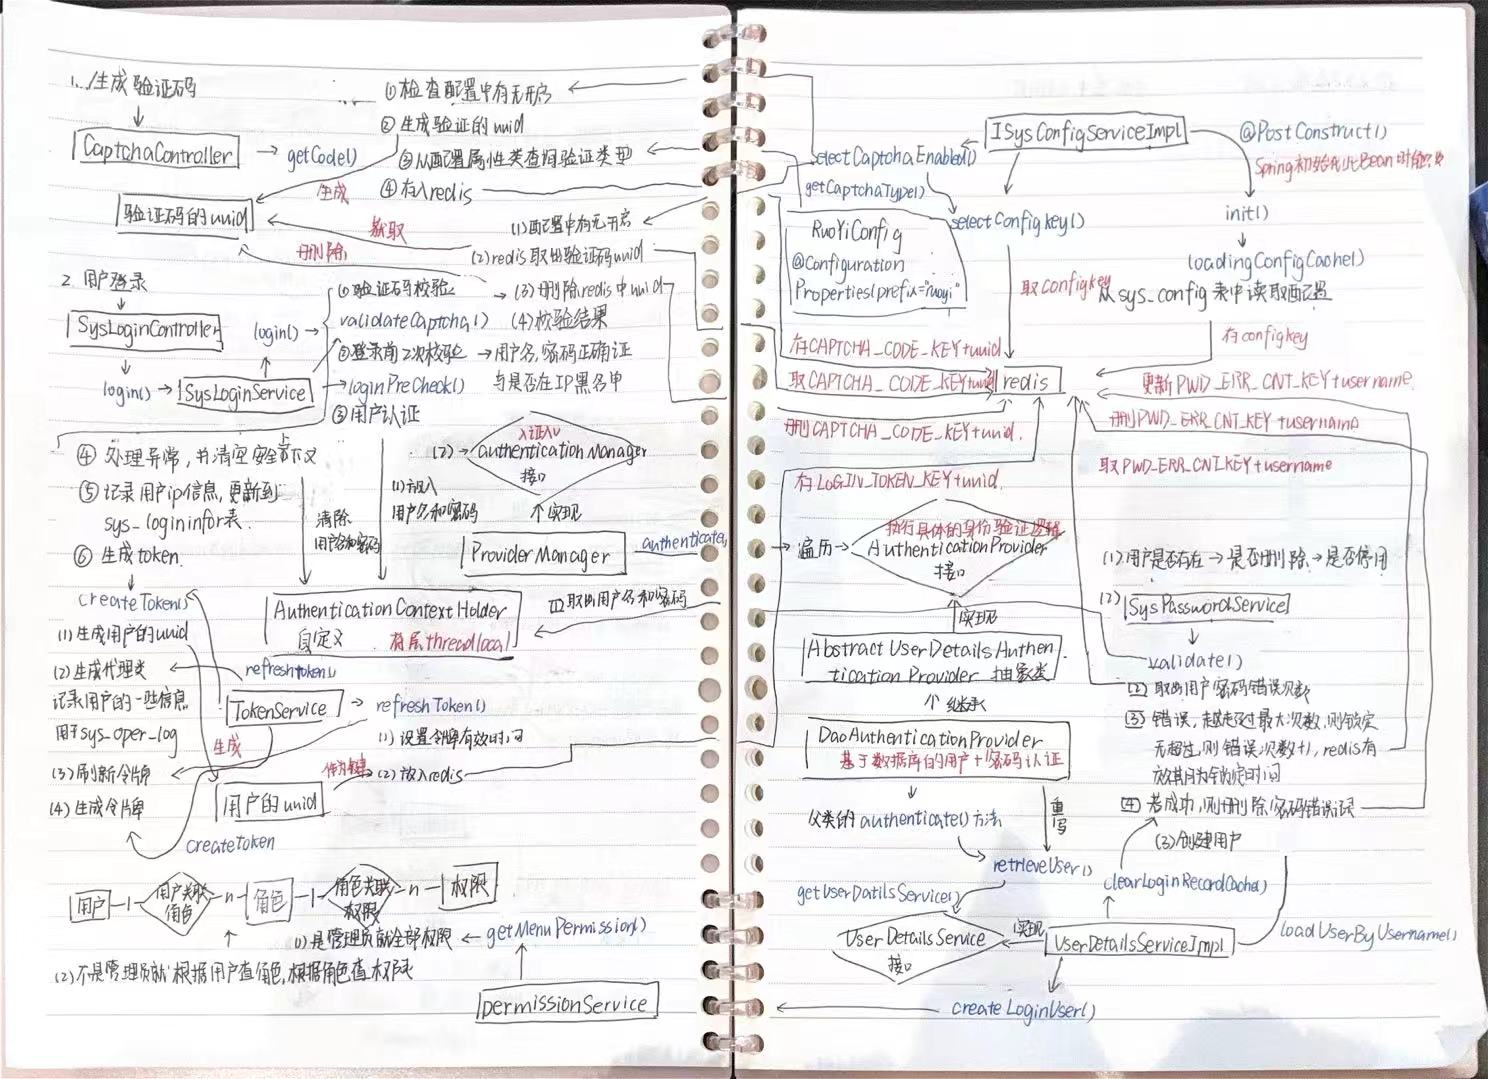 1. 生成验证码
CaptchaController
getCode()
①检查配置中有无开启
②生成验证的uuid
③从配置属性类查询验证类型
④存入redis
生成
验证码的uuid
获取
删除
(1)配置中有无开启
(2)redis取出验证码uuid
(3)删除redis中uuid
(4)校验结果
2. 用户登录
SysLoginController
login()
login()
SysLoginService
①验证码校验
validateCaptcha()
②登录前二次校验
→用户名,密码正确证
与是否在IP黑名单
loginPreCheck()
③用户认证
④处理异常,并清空安全上下文
⑤记录用户ip信息,更新到
sys_logininfor表.
⑥生成token
清除
用户名和密码
(1)放入
用户名和密码
(2)
认证入口
authenticationManager
接口
实现
ProviderManager
authenticate()
createToken()
(1)生成用户的uuid
(2)生成代理类
记录用户的一些信息
用于sys_oper_log
(3)刷新令牌
(4)生成令牌
AuthenticationContextHolder
自定义
存层threadlocal
①取出用户名和密码
refreshToken()
TokenService
refreshToken()
(1)设置令牌有效时间
(2)放入redis
生成
作为键
用户的uuid
createToken
用户 —1— 用户关联角色 —n— 角色 —1— 角色关联权限 —n— 权限
(1)是管理员就全部权限
getMenuPermission()
(2)不是管理员就根据用户查角色,根据角色查权限
permissionService
ISysConfigServiceImpl
@PostConstruct()
Spring初始化此Bean时
selectCaptchaEnabled()
getCaptchaType()
selectConfigKey()
init()
loadingConfigCache()
从sys_config表中读取配置
RuoYiConfig
@Configuration
Properties(prefix="ruoyi")
取configkey
存configkey
存CAPTCHA_CODE_KEY+uuid
取CAPTCHA_CODE_KEY+uuid
删CAPTCHA_CODE_KEY+uuid.
存LOGIN_TOKEN_KEY+uuid.
redis
更新PWD_ERR_CNT_KEY+username.
删PWD_ERR_CNT_KEY+username
取PWD_ERR_CNT_KEY+username
遍历
执行具体的身份验证逻辑
AuthenticationProvider
接口
实现
AbstractUserDetailsAuthen.
ticationProvider 抽象类
继承
DaoAuthenticationProvider
基于数据库的用户+密码认证
父类的authenticate()方法
重写
retrieveUser()
getUserDatilsService()
UserDetailsService
接口
实现
UserDetailsServiceImpl
createLoginUser()
(1)用户是否存在→是否删除→是否停用
(2)
SysPasswordService
validate()
②取出用户密码错误次数
③错误,超过最大次数,则锁定
无超过,则错误次数+1,redis有
效期为锁定时间
④若成功,则删除密码错误记录
(3)创建用户
clearLoginRecordCache()
loadUserByUsername()